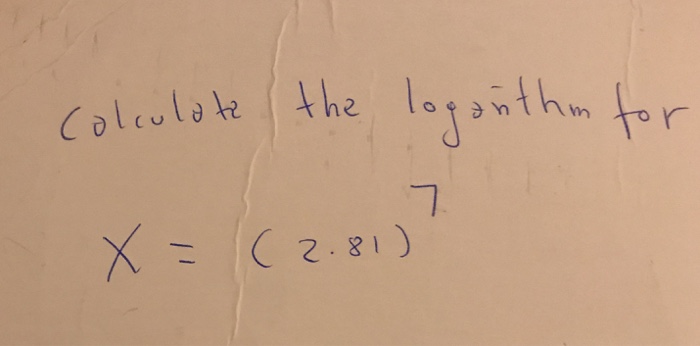 Calculate the logarithm for
X = (2.81)^7